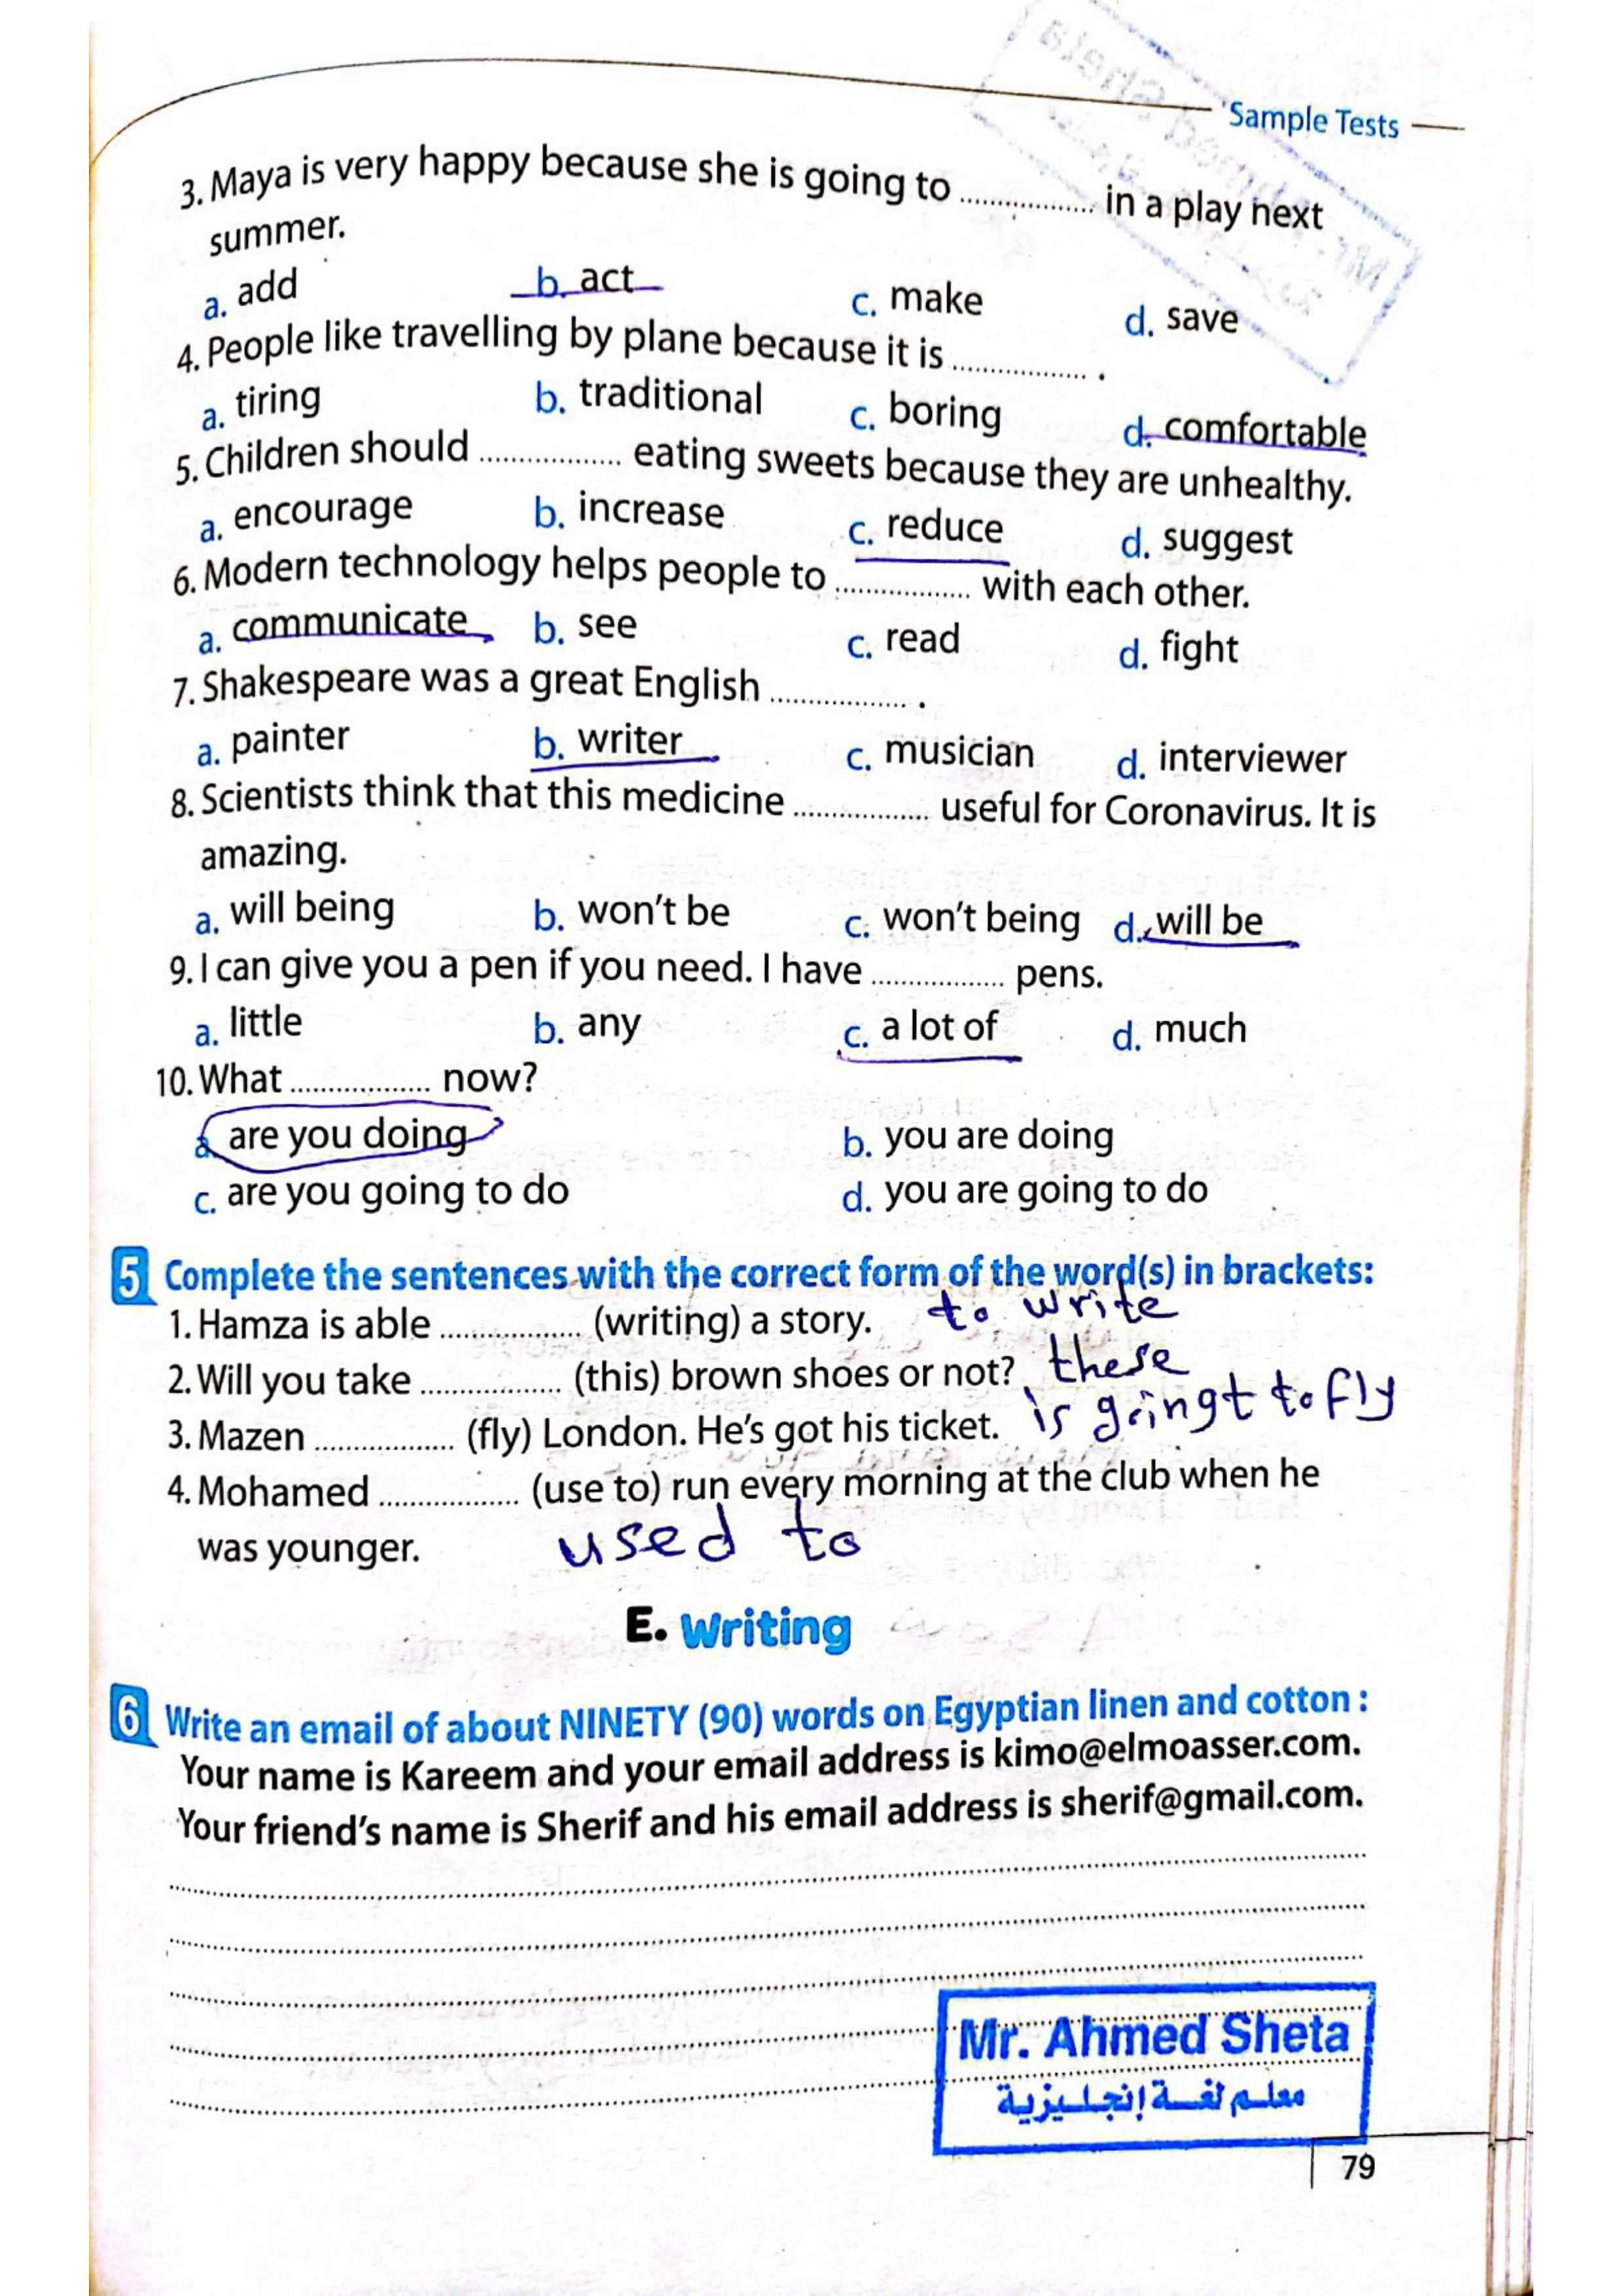 Sample Tests
3. Maya is very happy because she is going to ................ in a play next
summer.
a. add b. act c. make d. save
4. People like travelling by plane because it is ................ .
a. tiring b. traditional c. boring d. comfortable
5. Children should ................ eating sweets because they are unhealthy.
a. encourage b. increase c. reduce d. suggest
6. Modern technology helps people to ................ with each other.
a. communicate b. see c. read d. fight
7. Shakespeare was a great English ................ .
a. painter b. writer c. musician d. interviewer
8. Scientists think that this medicine ................ useful for Coronavirus. It is
amazing.
a. will being b. won't be c. won't being d. will be
9. I can give you a pen if you need. I have ................ pens.
a. little b. any c. a lot of d. much
10. What ................ now?
a. are you doing b. you are doing
c. are you going to do d. you are going to do
5 Complete the sentences with the correct form of the word(s) in brackets:
1. Hamza is able ................ (writing) a story. to write
2. Will you take ................ (this) brown shoes or not? these
3. Mazen ................ (fly) London. He's got his ticket. is goingt to fly
4. Mohamed ................ (use to) run every morning at the club when he
was younger. used to
E. Writing
6 Write an email of about NINETY (90) words on Egyptian linen and cotton :
Your name is Kareem and your email address is kimo@elmoasser.com.
Your friend's name is Sherif and his email address is sherif@gmail.com.
Mr. Ahmed Sheta
معلم لغة إنجليزية
79